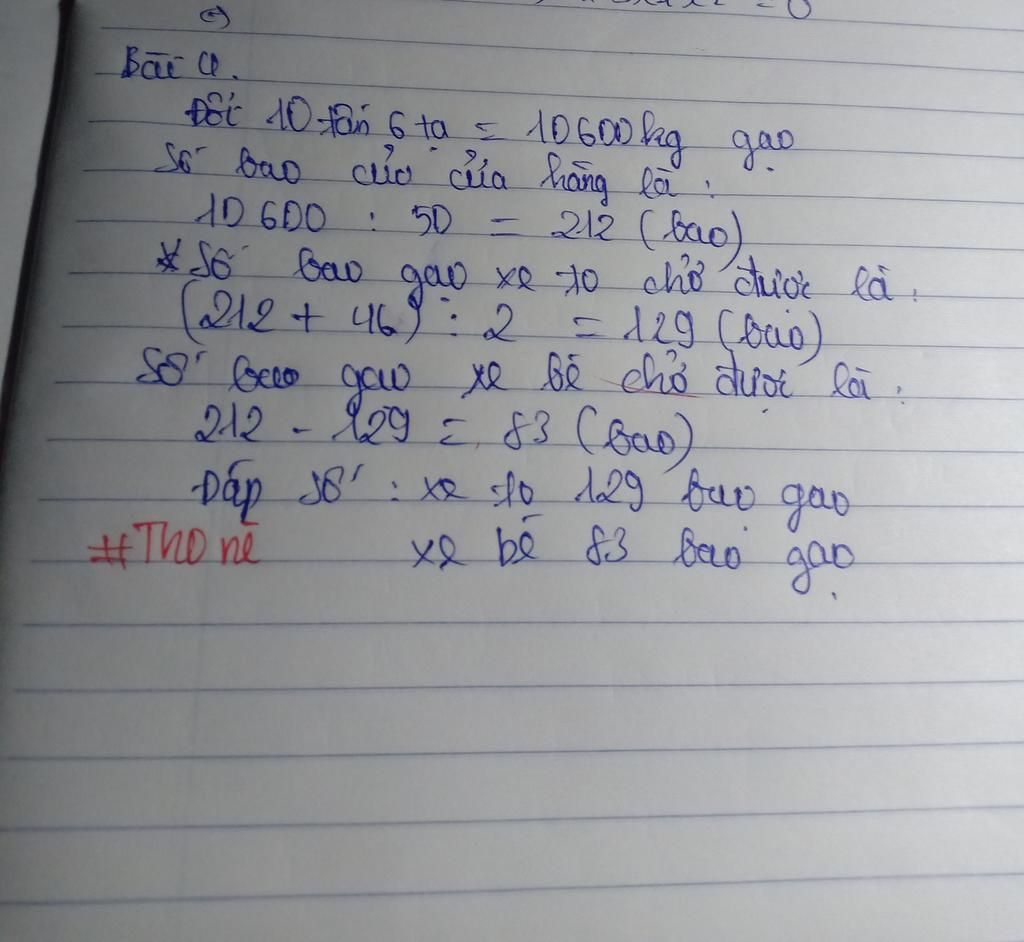 = 0
c)
Bài 4.
Đổi 10 tấn 6 tạ = 10600kg gạo
Số bao của cửa hàng là :
10 600 : 50 = 212 (bao)
* Số bao gạo xe to chở được là :
(212 + 46) : 2 = 129 (bao)
Số bao gạo xe bé chở được là :
212 - 129 = 83 (bao)
Đáp số : xe to 129 bao gạo
#Thonè xe bé 83 bao gạo